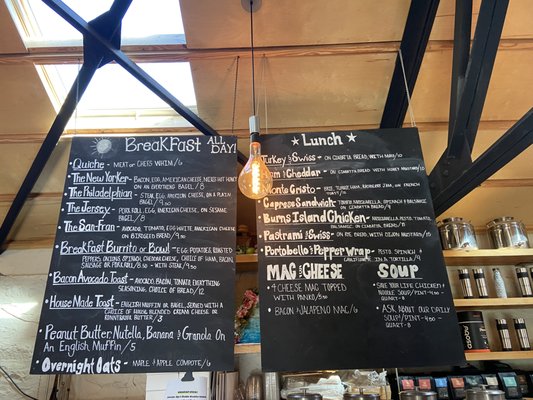 Breakfast ALL DAY!
Quiche - MEAT OR CHEFS WHIM/6
The New Yorker - BACON, EGG, AMERICAN CHEESE, NEEDS HOT HONEY
ON AN EVERYTHING BAGEL/8
The Philadelphian - STEAK, EGG, AMERICAN CHEESE, ON A PLAIN
BAGEL/9.50
The Jersey - PORK ROLL, EGG, AMERICAN CHEESE, ON SESAME
BAGEL/8
The San-Fran - AVOCADO, EGG WHITE, AMERICAN CHEESE
ON BAGEL/9
Breakfast Burrito or Bowl - EGG, POTATOES, ROASTED
PEPPERS, ONIONS, SPINACH, CHEDDAR CHEESE, CHOICE OF HAM, BACON,
SAUSAGE OR PORK ROLL/8.50 - WITH STEAK/9.50
Bacon Avocado Toast - AVOCADO, BACON, TOMATO, EVERYTHING
SEASONING, CHOICE OF BREAD/12
House Made Toast - ENGLISH MUFFIN OR BAGEL, SERVED WITH A
CHOICE OF HOUSE BLENDED CREAM CHEESE OR
BUTTER/3
Peanut Butter, Nutella, Banana & Granola On
An English Muffin/5
Overnight Oats - MAPLE & APPLE COMPOTE/6
Lunch
Turkey & Swiss - ON CIABATTA BREAD, WITH MAYO/10
Ham & Cheddar - ON CIABATTA BREAD, WITH HOT HONEY MAYO
Monte Gristo - BRIE, TURKEY, HAM, JAM, ON FRENCH
Caprese Sandwich - TOMATO, MOZZARELLA, SPINACH & BALSAMIC
ON CIABATTA BREAD/9
Burns Island Chicken - MOZZARELLA, PESTO, TOMATO,
BALSAMIC, ON CIABATTA BREAD/12
Pastrami & Swiss - ON RYE BREAD WITH DIJON MAYO/10
Portobello & Pepper Wrap - PESTO, SPINACH &
IN A TORTILLA/9
MAC & CHEESE
4 CHEESE MAC TOPPED
WITH PANKO/8.50
BACON & JALAPENO MAC/6
SOUP
SAVE YOUR LIFE CHICKEN &
NOODLE SOUP/PINT-4.50
QUART-8
ASK ABOUT OUR DAILY
SOUP/PINT-4.50
QUART-8